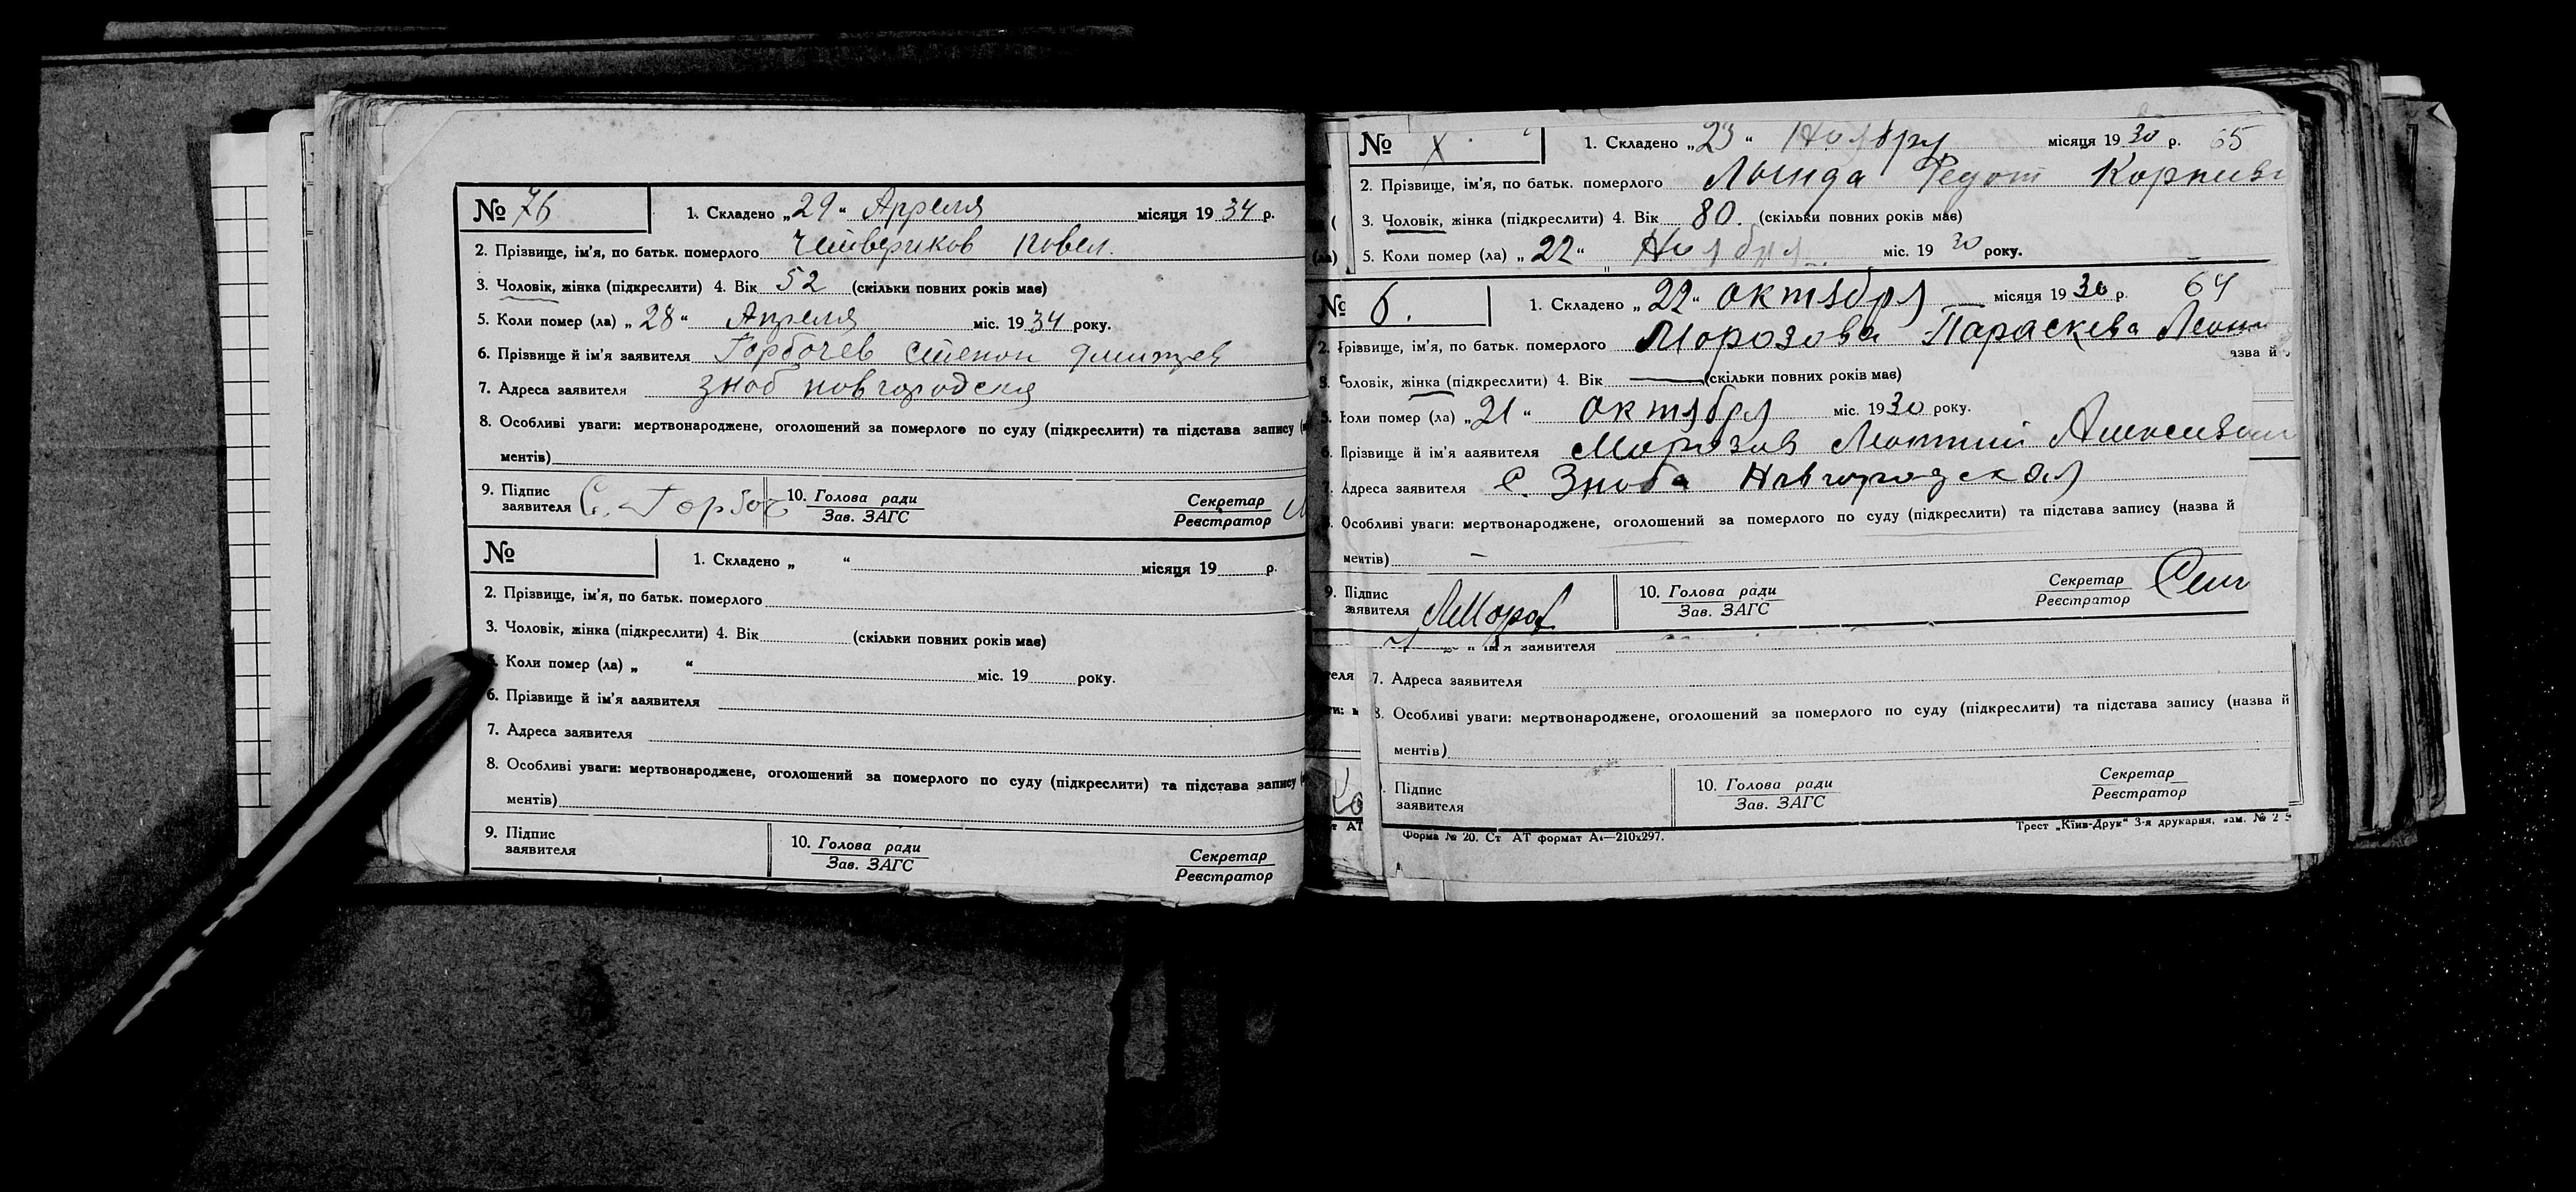 № 76 1. Складено „29“ Апреля місяця 1934 р.
2. Прізвище, ім'я, по батьк. померлого Четвериков Повел.
3. Чоловік, жінка (підкреслити) 4. Вік 52 (скільки повних років має)
5. Коли помер (ла) „28“ Апреля міс. 1934 року.
6. Прізвище й ім'я заявителя Горбочев Степон
7. Адреса заявителя Зноб новгородская
8. Особливі уваги: мертвонароджене, оголошений за померлого по суду (підкреслити) та підстава запису
ментів)
9. Підпис заявителя С. Горбоч 10. Голова ради Зав. ЗАГС Секретар Реєстратор
№ 1. Складено „ “ місяця 19 р.
2. Прізвище, ім'я, по батьк. померлого
3. Чоловік, жінка (підкреслити) 4. Вік (скільки повних років має)
5. Коли помер (ла) „ “ міс. 19 року.
6. Прізвище й ім'я заявителя
7. Адреса заявителя
8. Особливі уваги: мертвонароджене, оголошений за померлого по суду (підкреслити) та підстава запису
ментів)
9. Підпис заявителя 10. Голова ради Зав. ЗАГС Секретар Реєстратор
№ X 1. Складено „23“ Ноября місяця 1930 р. 65
2. Прізвище, ім'я, по батьк. померлого Лында Федот Корпеев
3. Чоловік, жінка (підкреслити) 4. Вік 80. (скільки повних років має)
5. Коли помер (ла) „22“ Ноября міс. 1930 року.
№ 6. 1. Складено „22“ октября місяця 1930 р. 64
2. Прізвище, ім'я, по батьк. померлого Морозова Параскева Леон
азва й
3. Чоловік, жінка (підкреслити) 4. Вік — (скільки повних років має)
5. Коли помер (ла) „21“ октября міс. 1930 року.
6. Прізвище й ім'я заявителя Морозов
7. Адреса заявителя с. Зноба Новгородская
Особливі уваги: мертвонароджене, оголошений за померлого по суду (підкреслити) та підстава запису (назва й
ментів) —
9. Підпис заявителя ЛМороз 10. Голова ради Зав. ЗАГС Секретар Реєстратор
ім'я заявителя
7. Адреса заявителя
8. Особливі уваги: мертвонароджене, оголошений за померлого по суду (підкреслити) та підстава запису (назва й
ментів)
Підпис заявителя 10. Голова ради Зав. ЗАГС Секретар Реєстратор
Форма № 20. Ст АТ формат А4—210х297. Трест „Київ-Друк“ 3-я друкарня, зам. № 2